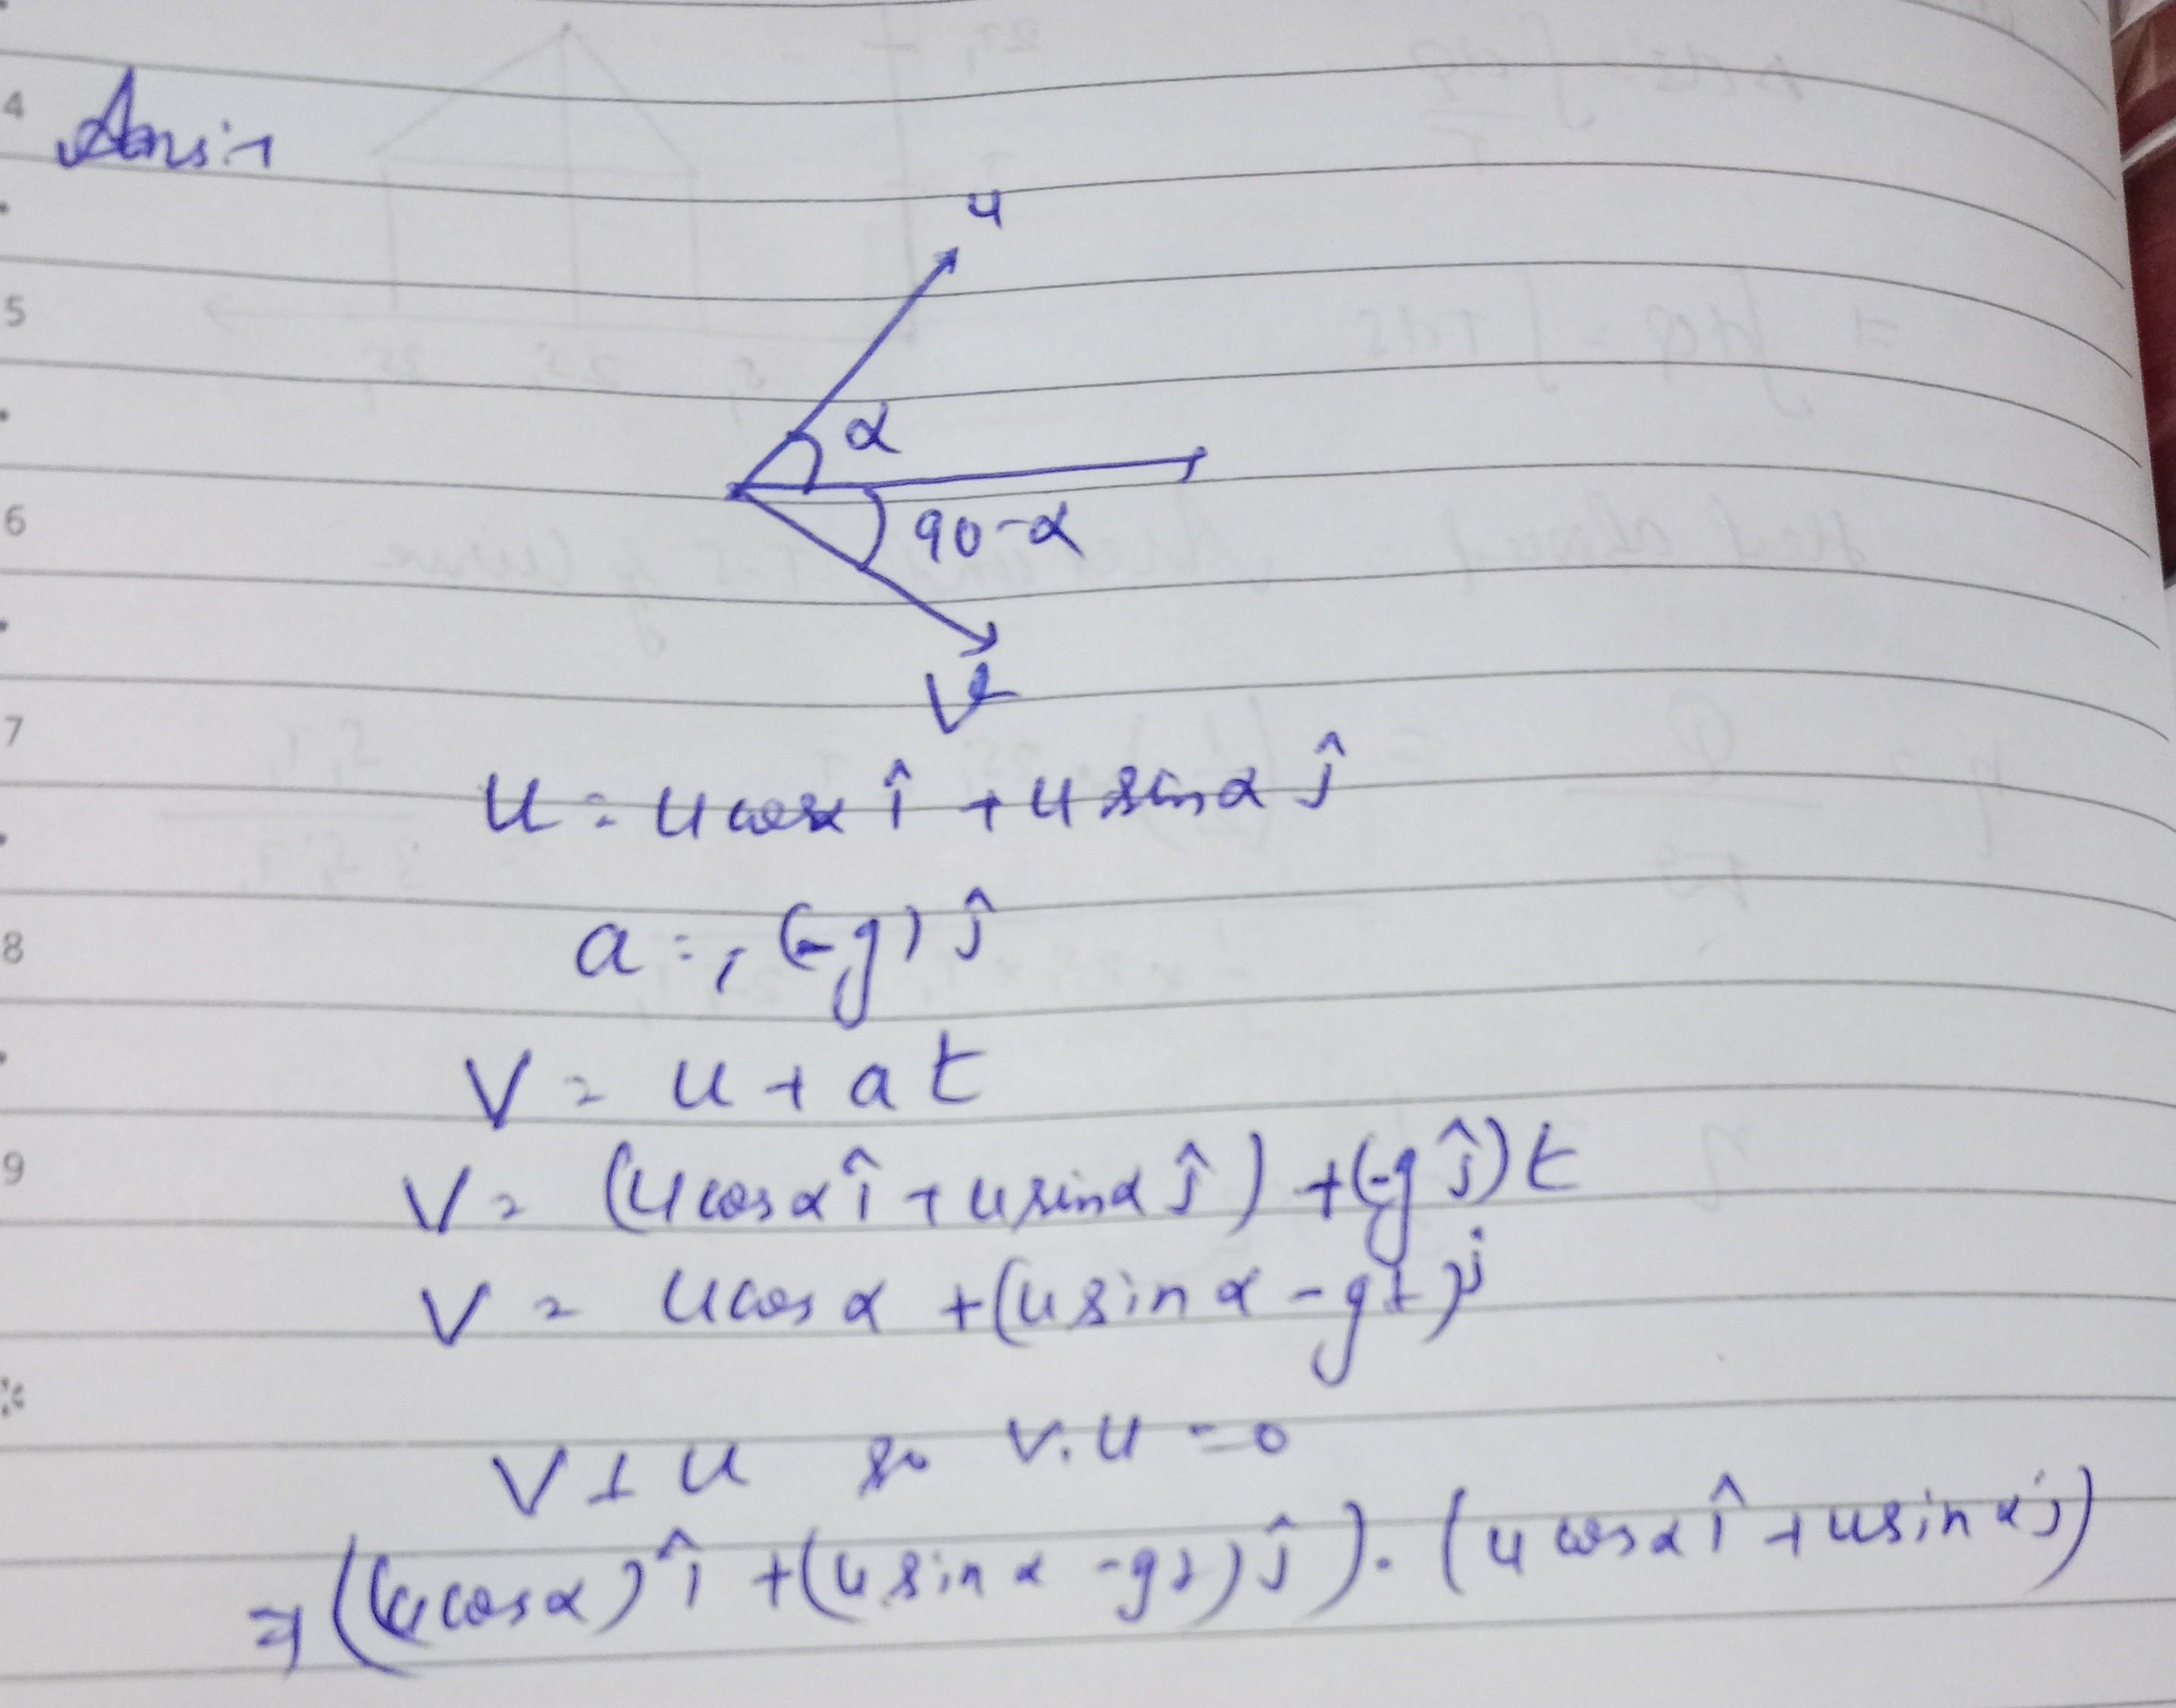 4
Ans:→
u
5
α
6
90-α
V
7
u = u cosα î + u sinα ĵ
8
a = (-g) ĵ
V = u + at
9
V = (u cosα î + u sinα ĵ) + (-g ĵ)t
V = u cos α + (u sin α - gt) j
V ⊥ u so v.u = 0
⇒ ((u cosα) î + (u sin α - gt) ĵ). (u cosα î + u sin α j)